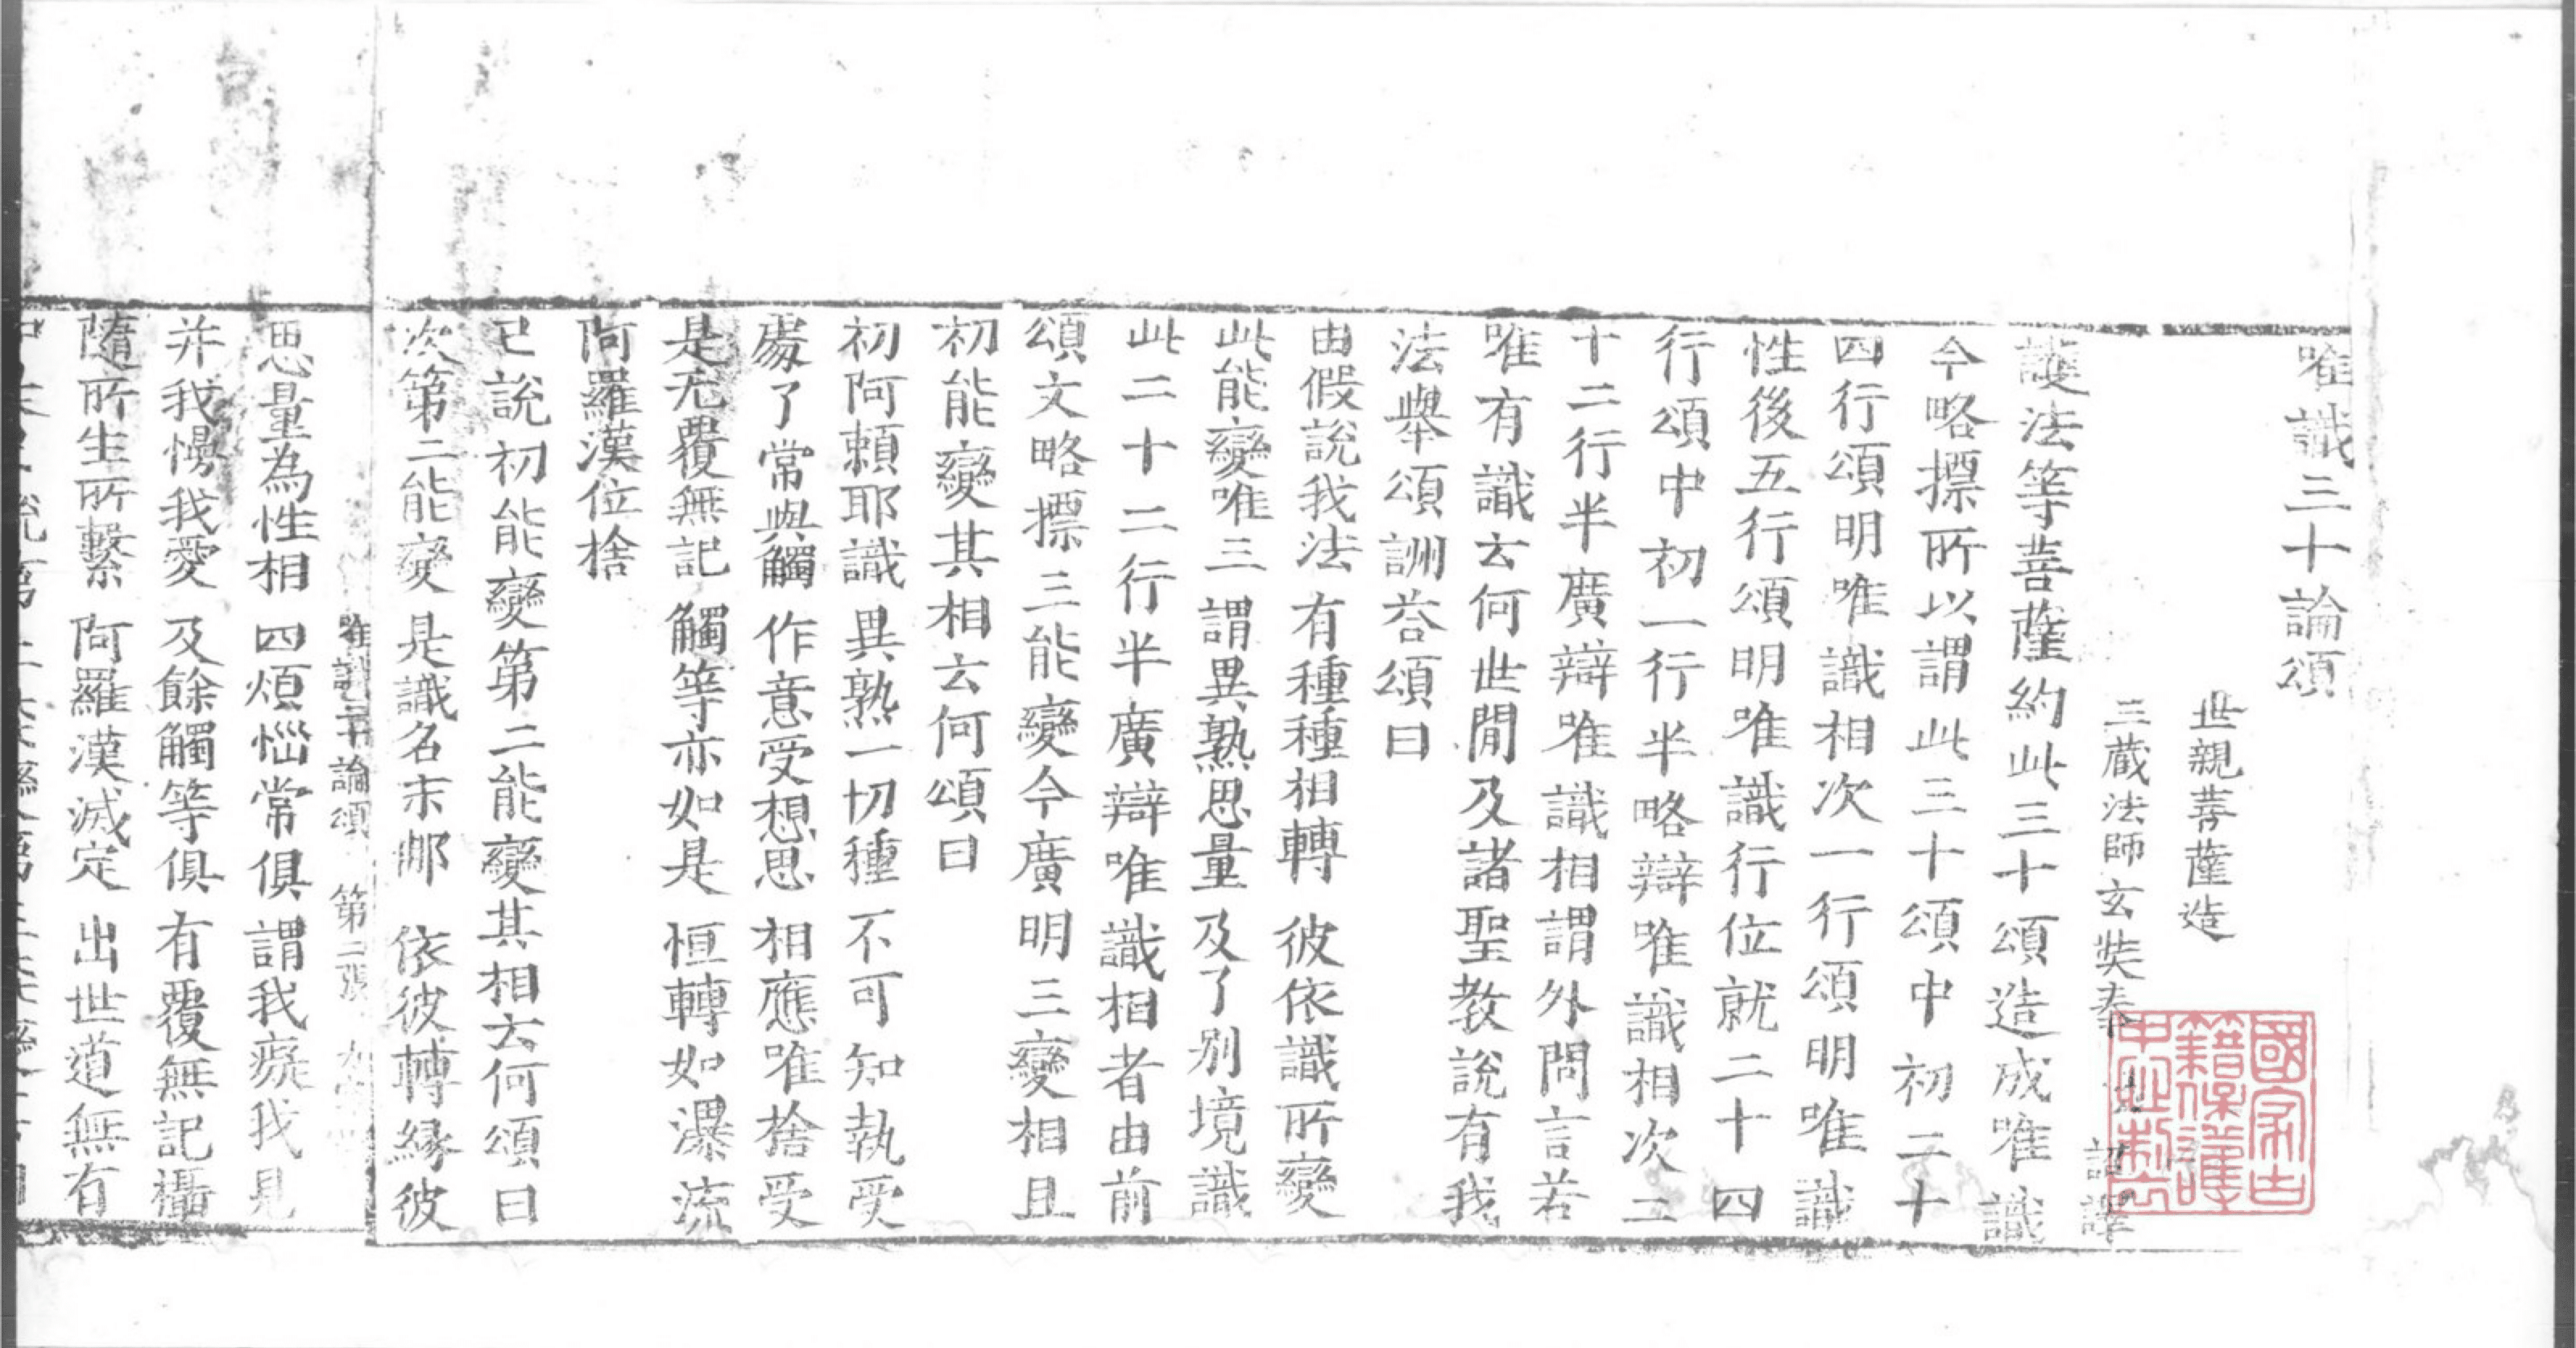 唯識三十論頌
世親菩薩造
三藏法師玄奘奉 詔譯
護法等菩薩約此三十頌造成唯識
今略摽所以謂此三十頌中初二十
四行頌明唯識相次一行頌明唯識
性後五行頌明唯識行位就二十四
行頌中初一行半略辯唯識相次二
十二行半廣辯唯識相謂外問言若
唯有識云何世閒及諸聖教說有我
法舉頌詶荅頌曰
由假說我法 有種種相轉 彼依識所變
此能變唯三 謂異熟思量 及了別境識
此二十二行半廣辯唯識相者由前
頌文略摽三能變今廣明三變相且
初能變其相云何頌曰
初阿賴耶識 異熟一切種 不可知執受
處了常與觸 作意受想思 相應唯捨受
是无覆無記 觸等亦如是 恒轉如瀑流
阿羅漢位捨
已說初能變第二能變其相云何頌曰
次第二能變 是識名末那 依彼轉緣彼
唯識三十論頌 第二張
思量為性相 四煩惱常俱 謂我癡我見
并我慢我愛 及餘觸等俱 有覆無記攝
隨所生所繫 阿羅漢滅定 出世道無有
國家古籍保護中心制作